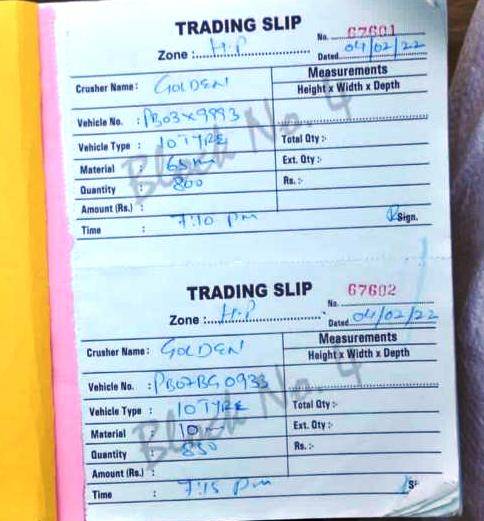 TRADING SLIP
No. 67601
Zone :.......H.P.......
Dated 04/02/22
Crusher Name : GOLDEN
Measurements
Height x Width x Depth
Vehicle No. : PB03X9993
Vehicle Type : 10 TYRE
Total Qty :-
Material : 65 m
Ext. Qty :-
Quantity : 800
Rs. :-
Amount (Rs.) :
Time : 7:10 pm
Sign.
Block No. 4
TRADING SLIP
No. 67602
Zone :.......H.P.......
Dated 04/02/22
Crusher Name : GOLDEN
Measurements
Height x Width x Depth
Vehicle No. : PB07BG0933
Vehicle Type : 10 TYRE
Total Qty :-
Material : 10 m
Ext. Qty :-
Quantity : 850
Rs. :-
Amount (Rs.) :
Time : 7:15 pm
Block No. 4